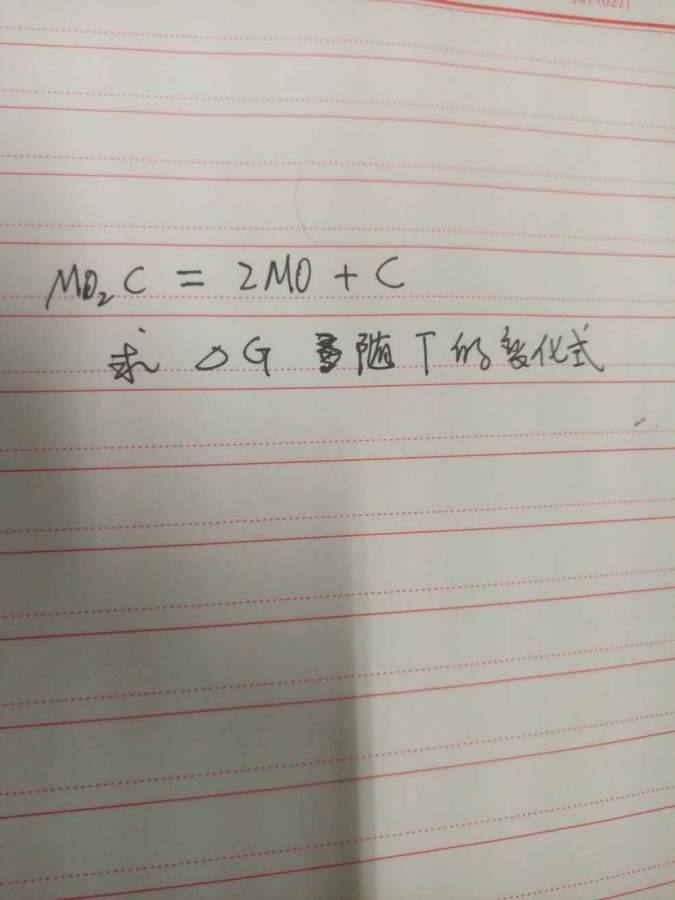 MO₂C = 2MO + C
求 △G 随 T 的变化式